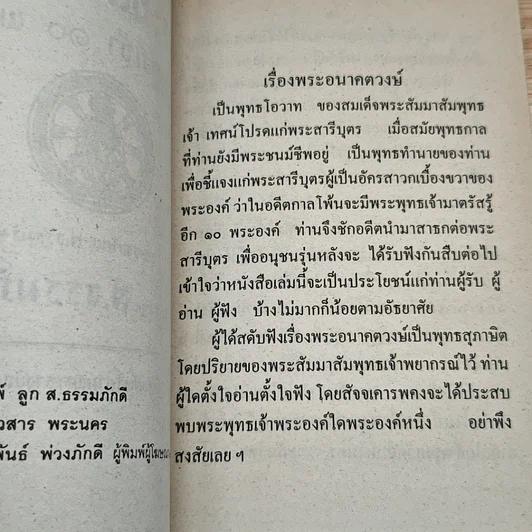 เรื่องพระอนาคตวงษ์
เป็นพุทธโอวาท ของสมเด็จพระสัมมาสัมพุทธ
เจ้า เทศน์โปรดแก่พระสารีบุตร เมื่อสมัยพุทธกาล
ที่ท่านยังมีพระชนม์ชีพอยู่ เป็นพุทธทำนายของท่าน
เพื่อชี้แจงแก่พระสารีบุตรผู้เป็นอัครสาวกเบื้องขวาของ
พระองค์ ว่าในอดีตกาลโพ้นจะมีพระพุทธเจ้ามาตรัสรู้
อีก ๑๐ พระองค์ ท่านจึงชักอดีตนำมาสาธกต่อพระ
สารีบุตร เพื่ออนุชนรุ่นหลังจะ ได้รับฟังกันสืบต่อไป
เข้าใจว่าหนังสือเล่มนี้จะเป็นประโยชน์แก่ท่านผู้รับ ผู้
อ่าน ผู้ฟัง บ้างไม่มากก็น้อยตามอัธยาศัย
ผู้ได้สดับฟังเรื่องพระอนาคตวงษ์เป็นพุทธสุภาษิต
โดยปริยายของพระสัมมาสัมพุทธเจ้าพยากรณ์ไว้ ท่าน
ผู้ใดตั้งใจอ่านตั้งใจฟัง โดยสัจจเคารพคงจะได้ประสบ
พบพระพุทธเจ้าพระองค์ใดพระองค์หนึ่ง อย่าพึง
สงสัยเลย ฯ
ลูก ส.ธรรมภักดี
พระนคร
พ่วงภักดี ผู้พิมพ์ผู้โฆษณา